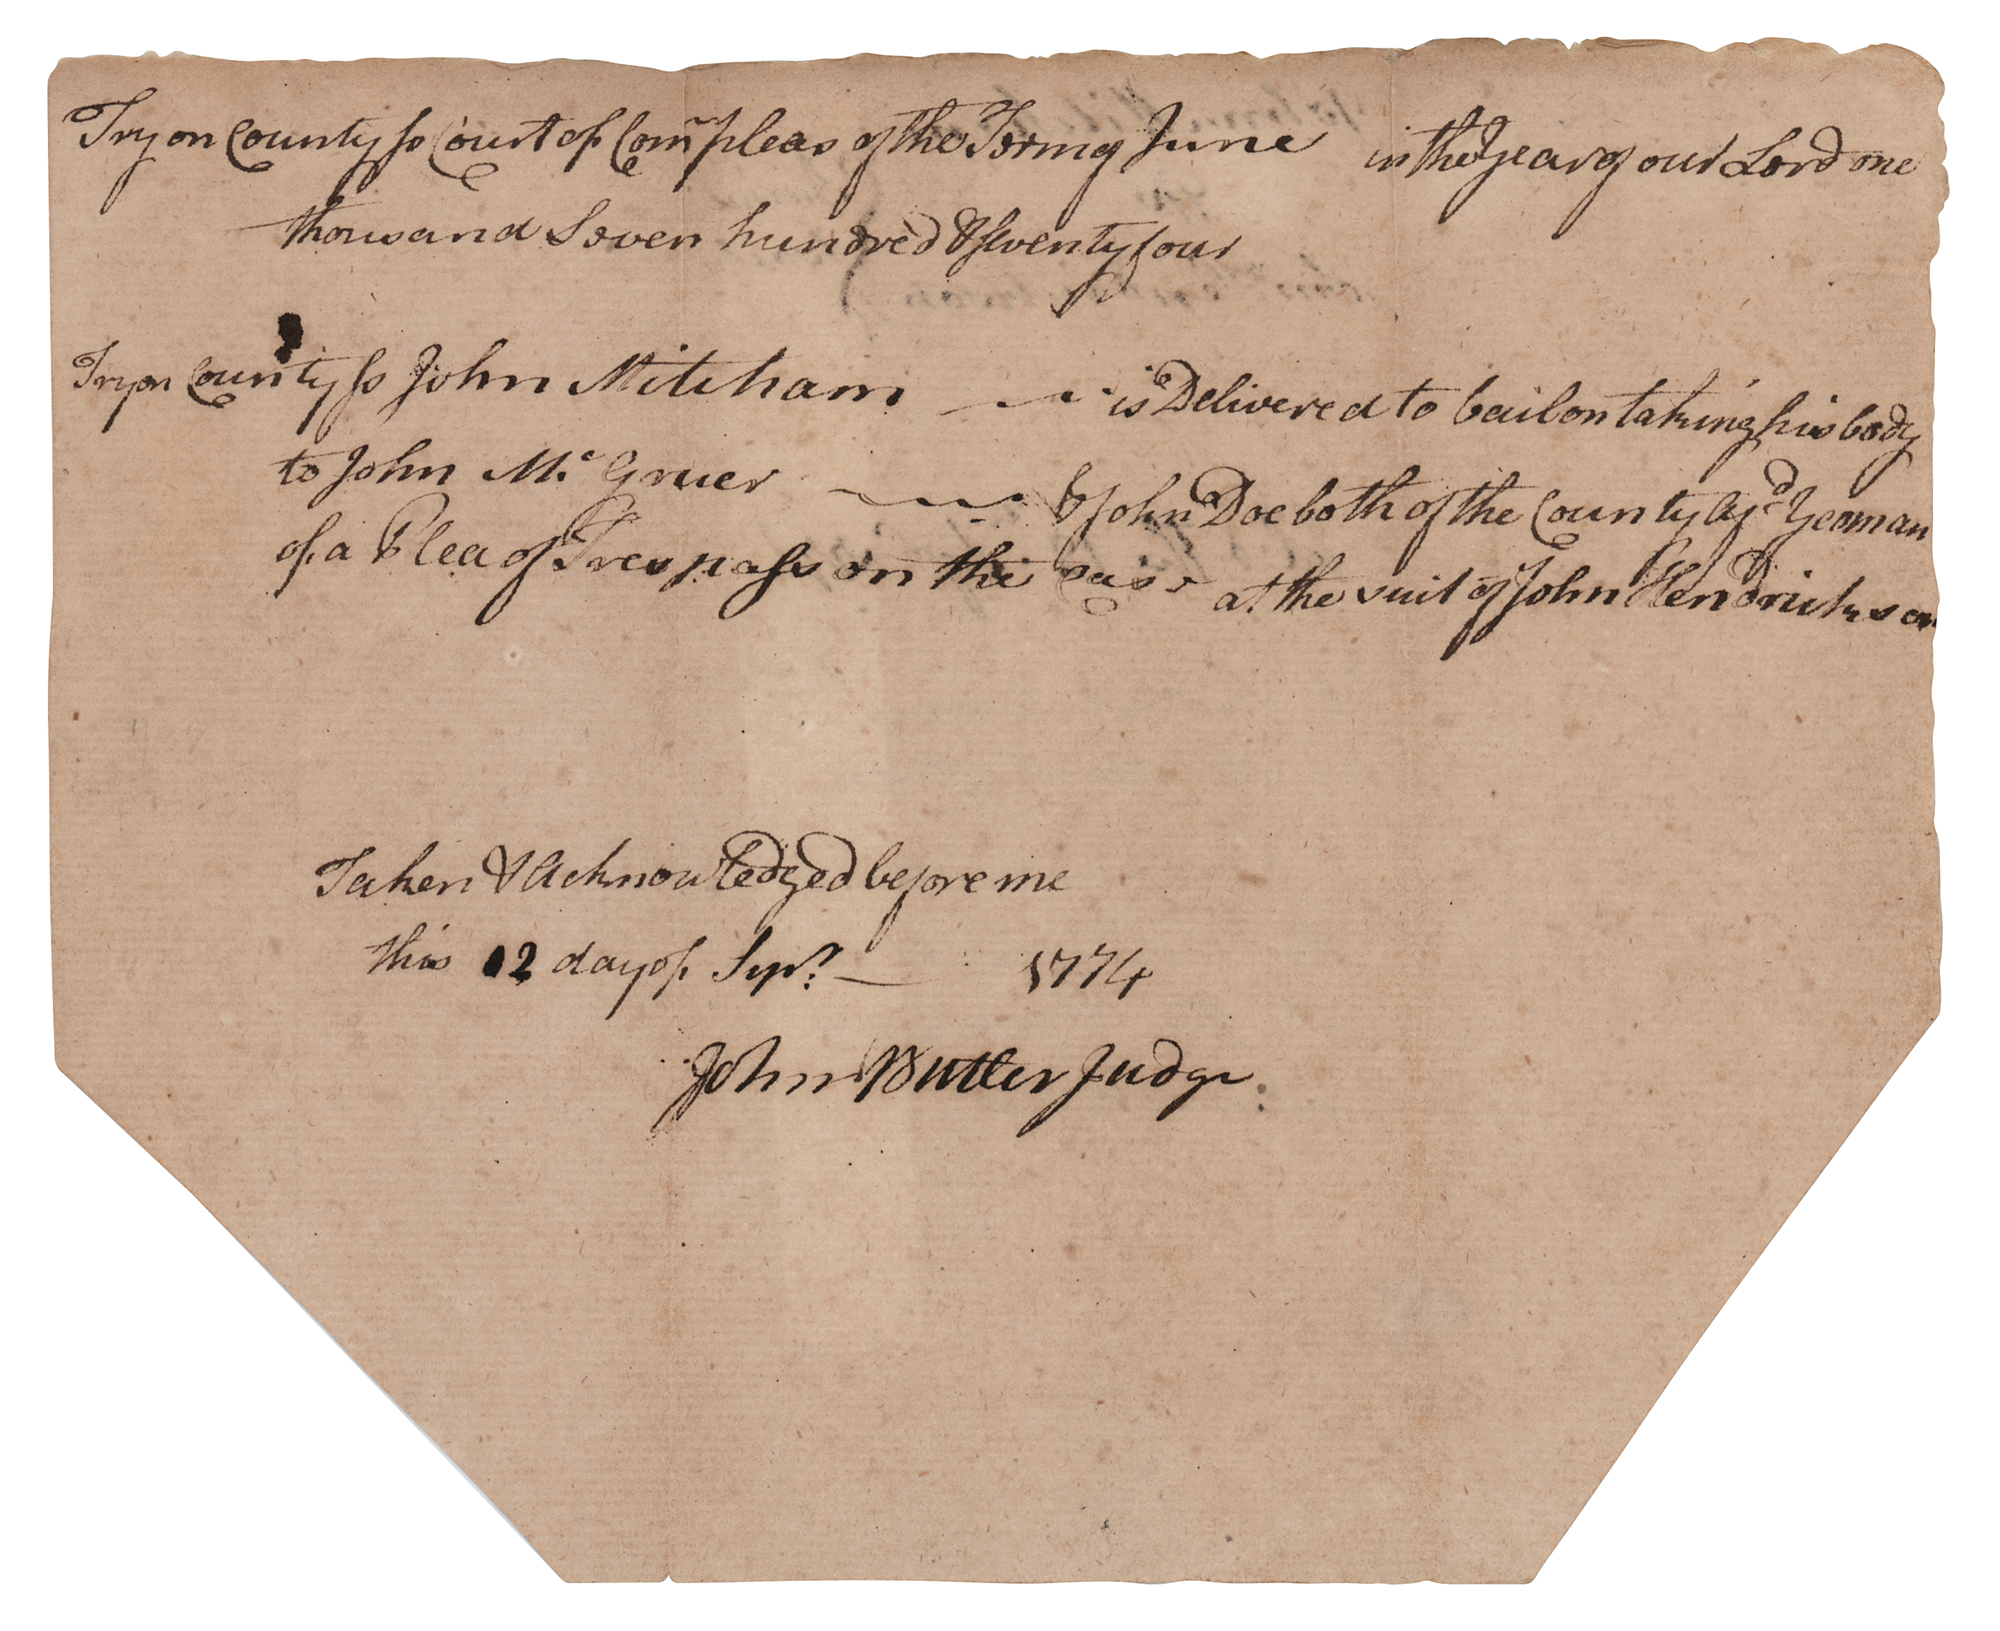 Tryon County ss Court of Com̅ pleas of the Term of June in the Year of our Lord one
thousand Seven hundred & seventy four
Tryon County ss John Mitcham is Delivered to bail on taking his body
to John Mc Gruer & John Doe both of the County afd Yeoman
of a Plea of Trespass on the Case at the suit of John Hendrickson
Taken & Acknowledged before me
this 12 day of Sepr. 1774
John Butler Judge